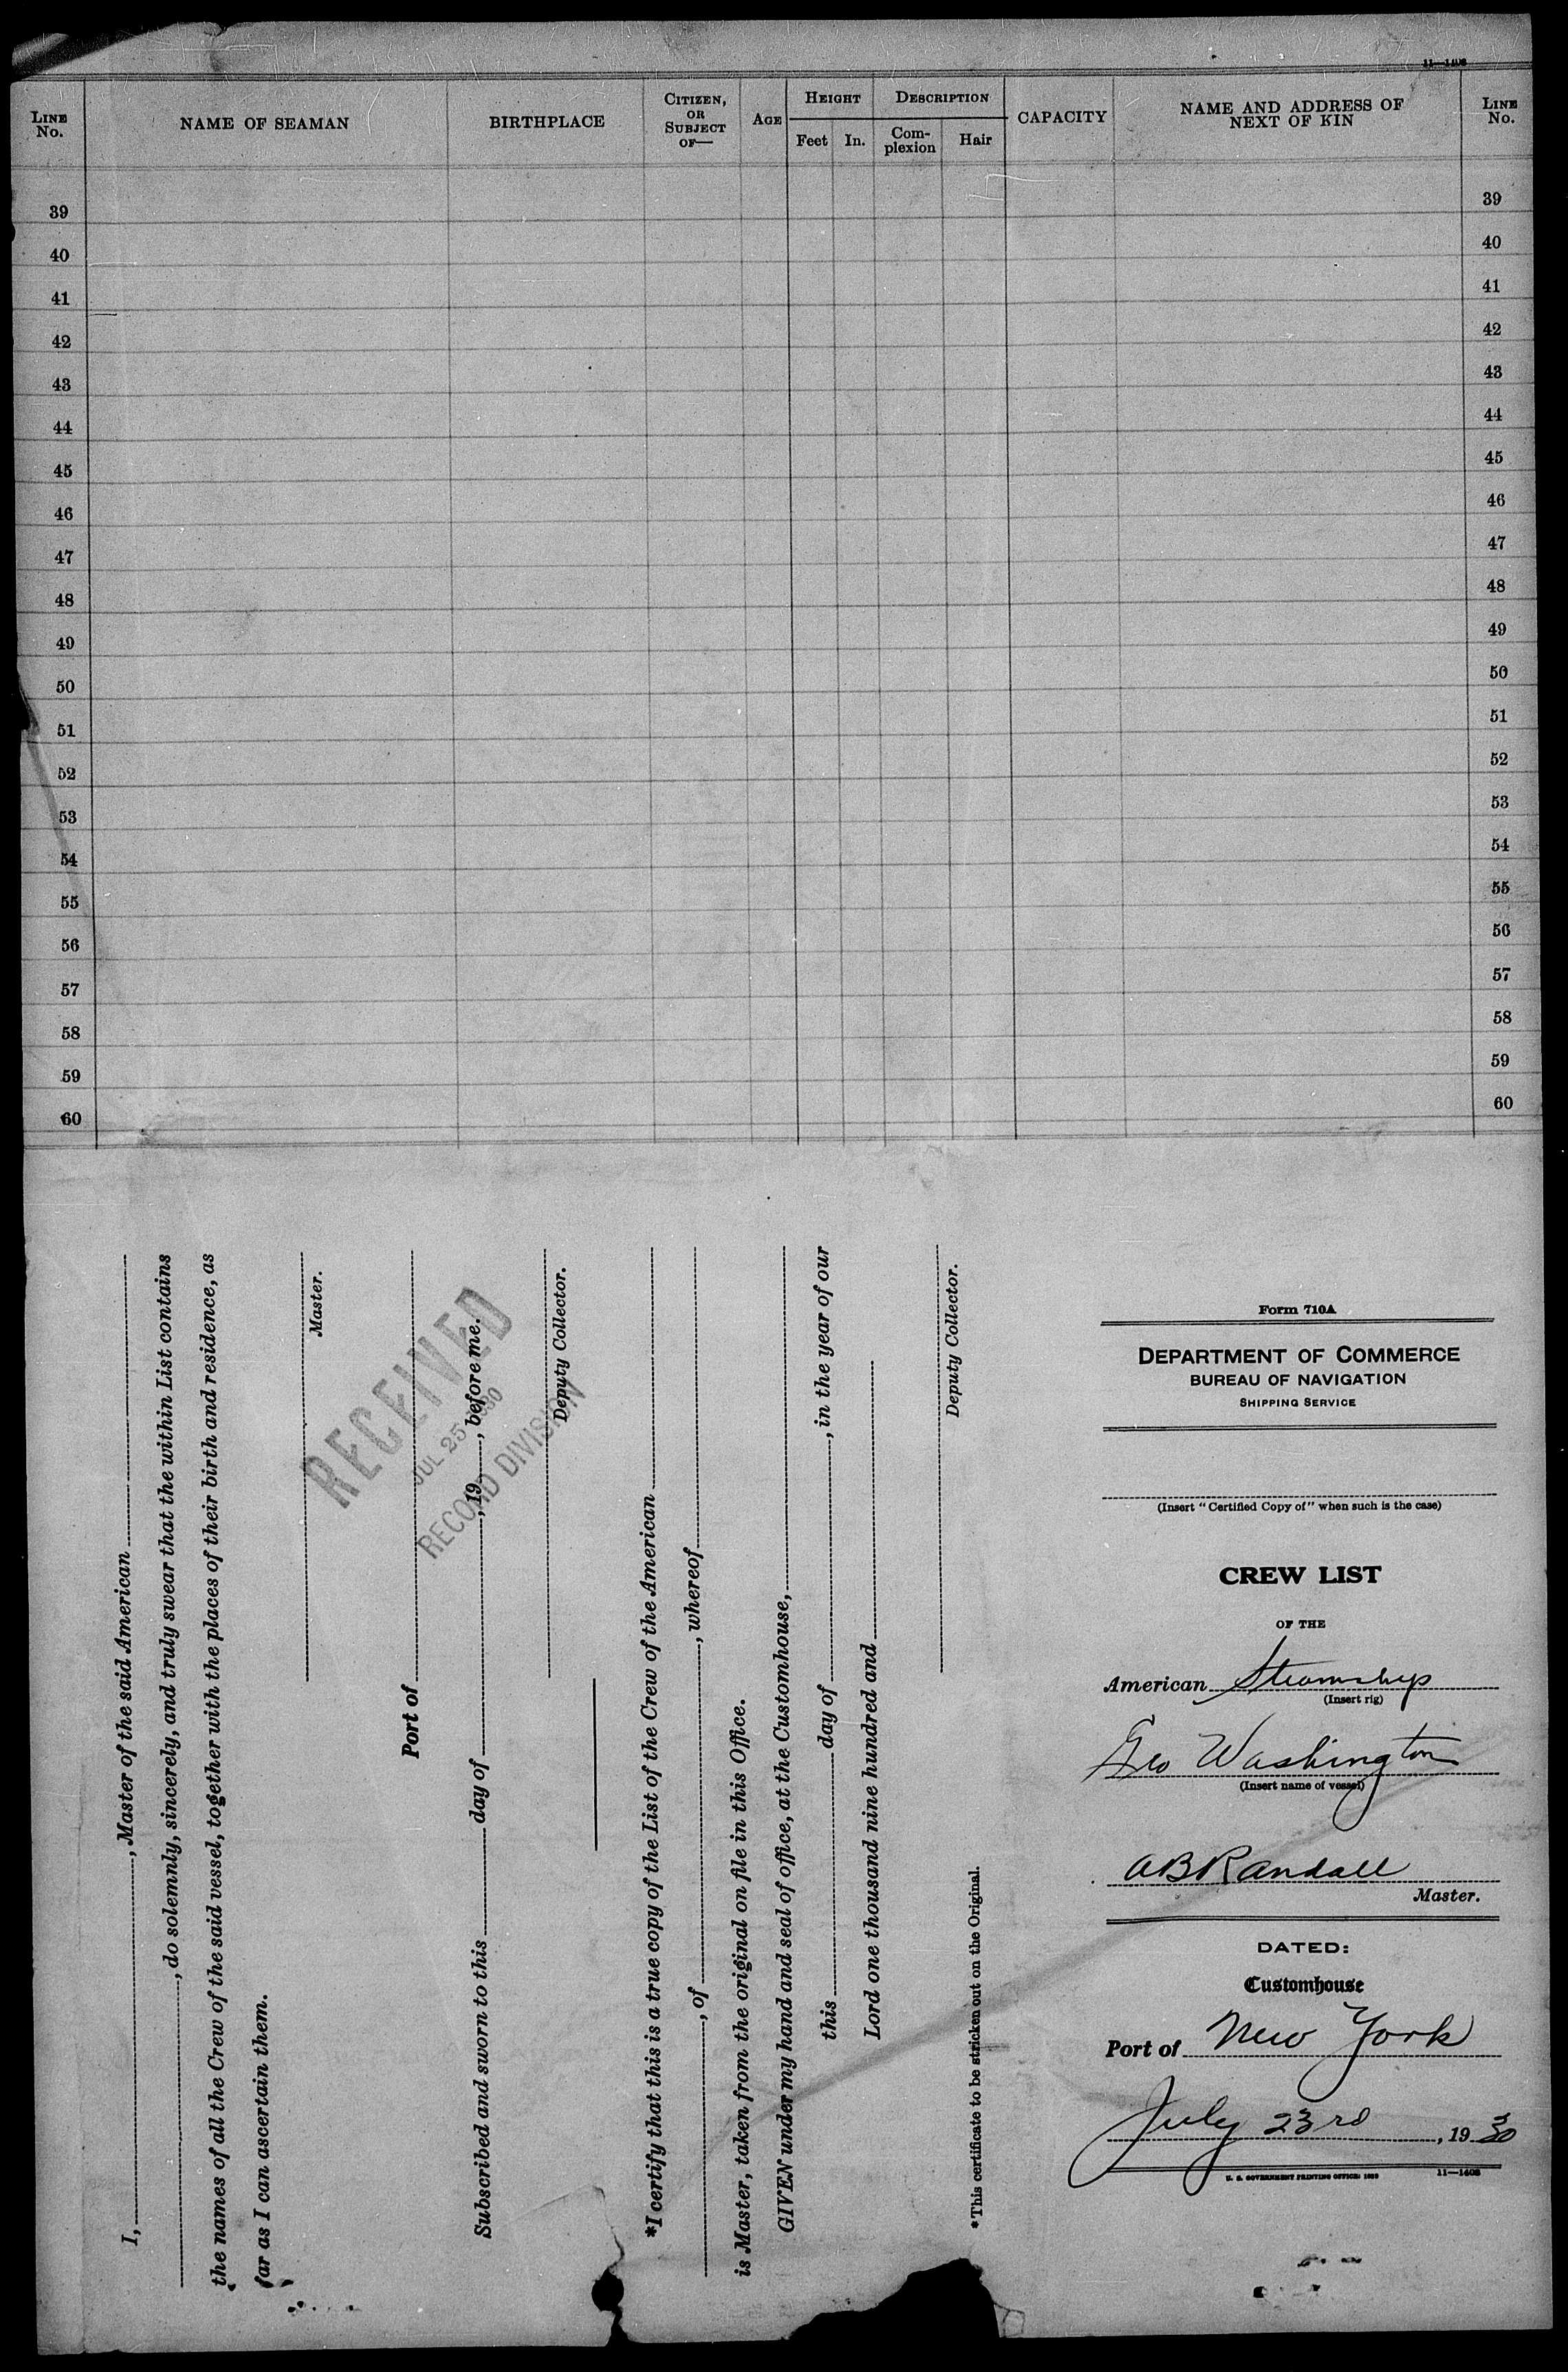 11—1408
LINE No. NAME OF SEAMAN BIRTHPLACE CITIZEN, OR SUBJECT OF— AGE HEIGHT Feet In. DESCRIPTION Complexion Hair CAPACITY NAME AND ADDRESS OF NEXT OF KIN LINE No.
39 39
40 40
41 41
42 42
43 43
44 44
45 45
46 46
47 47
48 48
49 49
50 50
51 51
52 52
53 53
54 54
55 55
56 56
57 57
58 58
59 59
60 60
I, , Master of the said American
, do solemnly, sincerely, and truly swear that the within List contains
the names of all the Crew of the said vessel, together with the places of their birth and residence, as
far as I can ascertain them.
Master.
Port of
Subscribed and sworn to this day of , 19 , before me.
Deputy Collector.
RECEIVED
JUL 25 1930
RECORD DIVISION
*I certify that this is a true copy of the List of the Crew of the American
, of , whereof
is Master, taken from the original on file in this Office.
GIVEN under my hand and seal of office, at the Customhouse,
this day of , in the year of our
Lord one thousand nine hundred and
Deputy Collector.
*This certificate to be stricken out on the Original.
Form 710A
DEPARTMENT OF COMMERCE
BUREAU OF NAVIGATION
SHIPPING SERVICE
(Insert "Certified Copy of" when such is the case)
CREW LIST
OF THE
American Steamship
(Insert rig)
Geo Washington
(Insert name of vessel)
A B Randall
Master.
DATED:
Customhouse
Port of New York
July 23rd , 19 30
U. S. GOVERNMENT PRINTING OFFICE: 11—1408